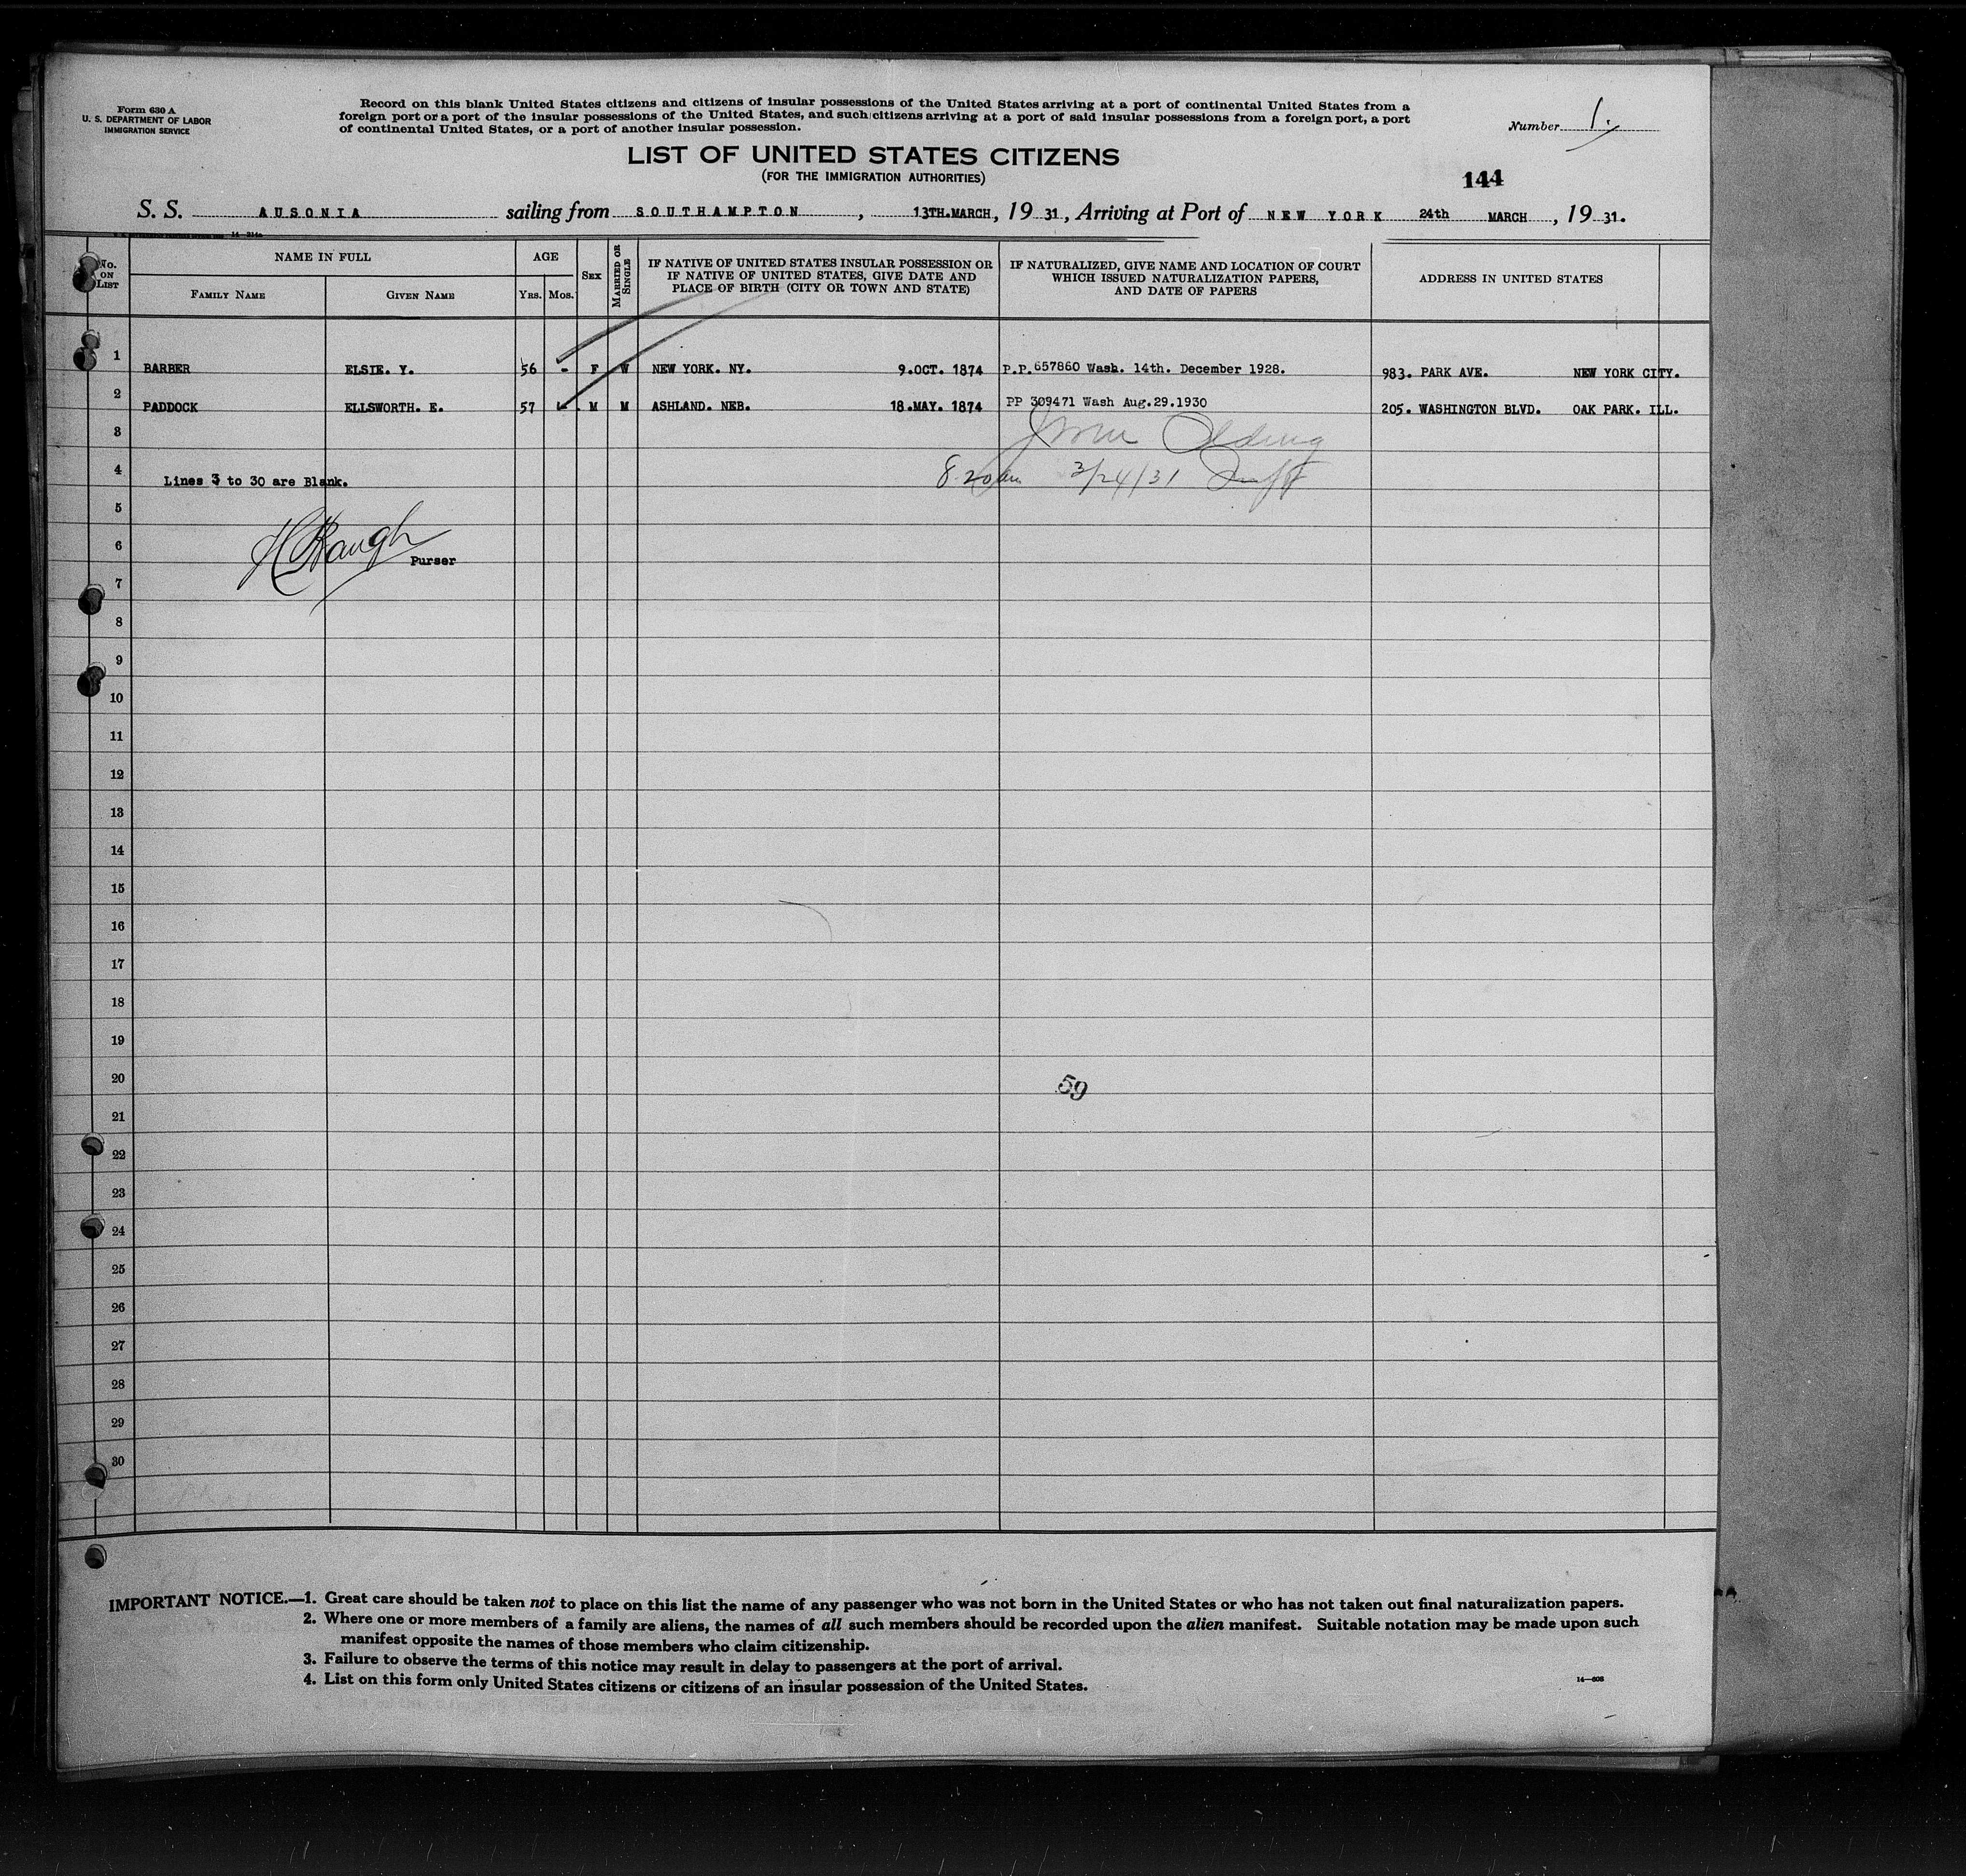 Form 630 A
U. S. DEPARTMENT OF LABOR
IMMIGRATION SERVICE
Record on this blank United States citizens and citizens of insular possessions of the United States arriving at a port of continental United States from a
foreign port or a port of the insular possessions of the United States, and such citizens arriving at a port of said insular possessions from a foreign port, a port
of continental United States, or a port of another insular possession.
Number 1.
LIST OF UNITED STATES CITIZENS
(FOR THE IMMIGRATION AUTHORITIES)
144
S. S. AUSONIA sailing from SOUTHAMPTON, 13TH.MARCH, 19 31, Arriving at Port of NEW YORK 24th MARCH, 19 31.
No. ON LIST
NAME IN FULL
FAMILY NAME
GIVEN NAME
AGE
YRS. MOS.
SEX
MARRIED OR SINGLE
IF NATIVE OF UNITED STATES INSULAR POSSESSION OR
IF NATIVE OF UNITED STATES, GIVE DATE AND
PLACE OF BIRTH (CITY OR TOWN AND STATE)
IF NATURALIZED, GIVE NAME AND LOCATION OF COURT
WHICH ISSUED NATURALIZATION PAPERS,
AND DATE OF PAPERS
ADDRESS IN UNITED STATES
1 BARBER ELSIE. Y. 56 - F W NEW YORK. NY. 9.OCT. 1874 P.P.657860 Wash. 14th. December 1928. 983. PARK AVE. NEW YORK CITY.
2 PADDOCK ELLSWORTH. E. 57 - M M ASHLAND. NEB. 18.MAY. 1874 PP 309471 Wash Aug.29.1930 205. WASHINGTON BLVD. OAK PARK. ILL.
3
4 Lines 3 to 30 are Blank. 8.20 am 3/24/31
5
6 Purser
7
8
9
10
11
12
13
14
15
16
17
18
19
20 59
21
22
23
24
25
26
27
28
29
30
IMPORTANT NOTICE.—1. Great care should be taken not to place on this list the name of any passenger who was not born in the United States or who has not taken out final naturalization papers.
2. Where one or more members of a family are aliens, the names of all such members should be recorded upon the alien manifest. Suitable notation may be made upon such
manifest opposite the names of those members who claim citizenship.
3. Failure to observe the terms of this notice may result in delay to passengers at the port of arrival.
4. List on this form only United States citizens or citizens of an insular possession of the United States.
14—608